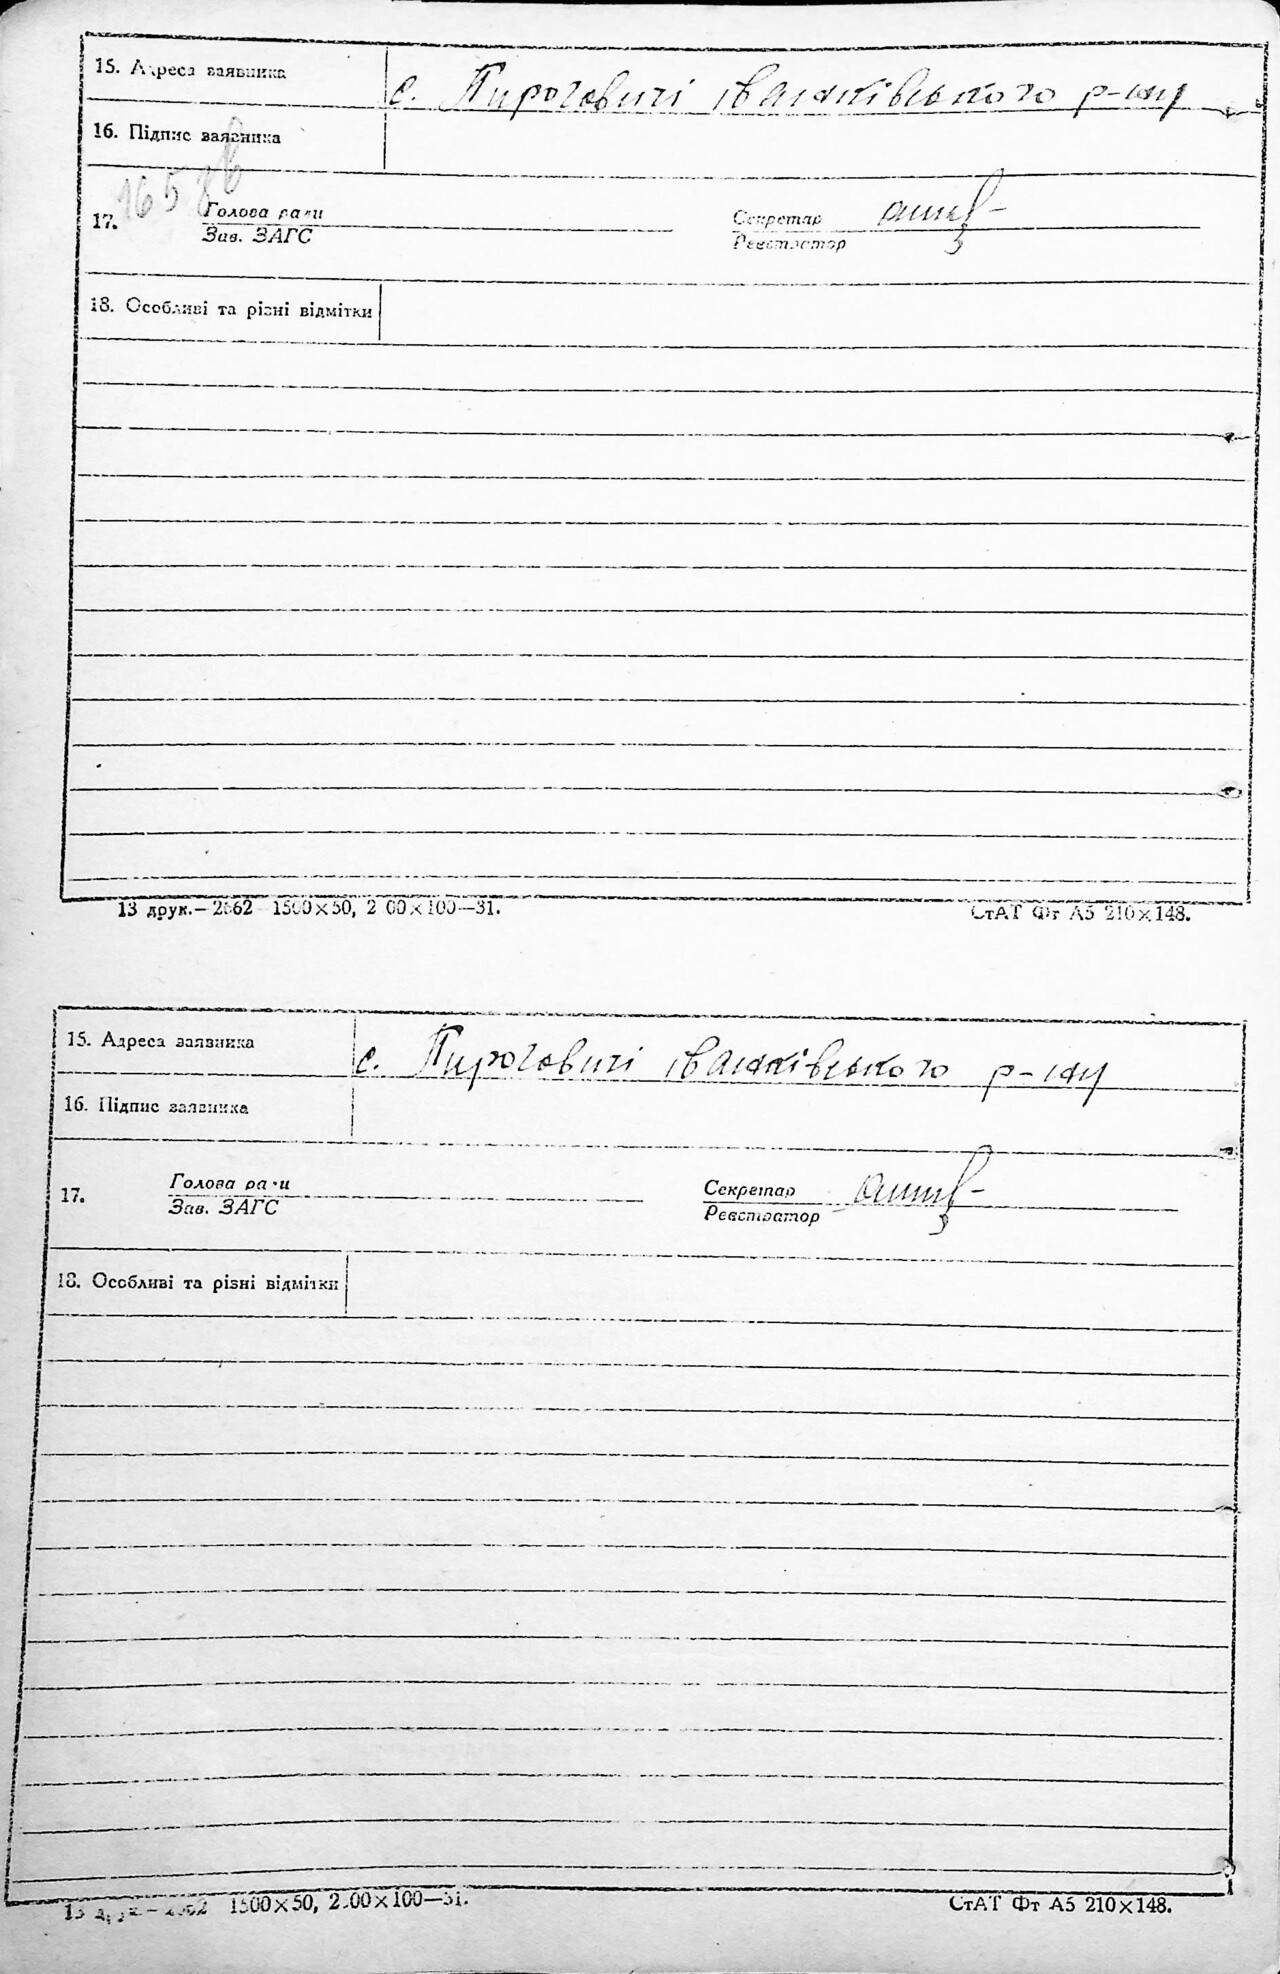 15. Адреса заявника
с. Пироговичі іванківського р-ну
16. Підпис заявника
17.
Голова ради
Зав. ЗАГС
Секретар
Реєстратор
18. Особливі та різні відмітки
13 друк.—2662 1500×50, 2 00×100—31.
СтАТ Фт А5 210×148.
15. Адреса заявника
с. Пироговичі іванківського р-ну
16. Підпис заявника
17.
Голова ради
Зав. ЗАГС
Секретар
Реєстратор
18. Особливі та різні відмітки
13 друк.—2662 1500×50, 2.00×100—31.
СтАТ Фт А5 210×148.